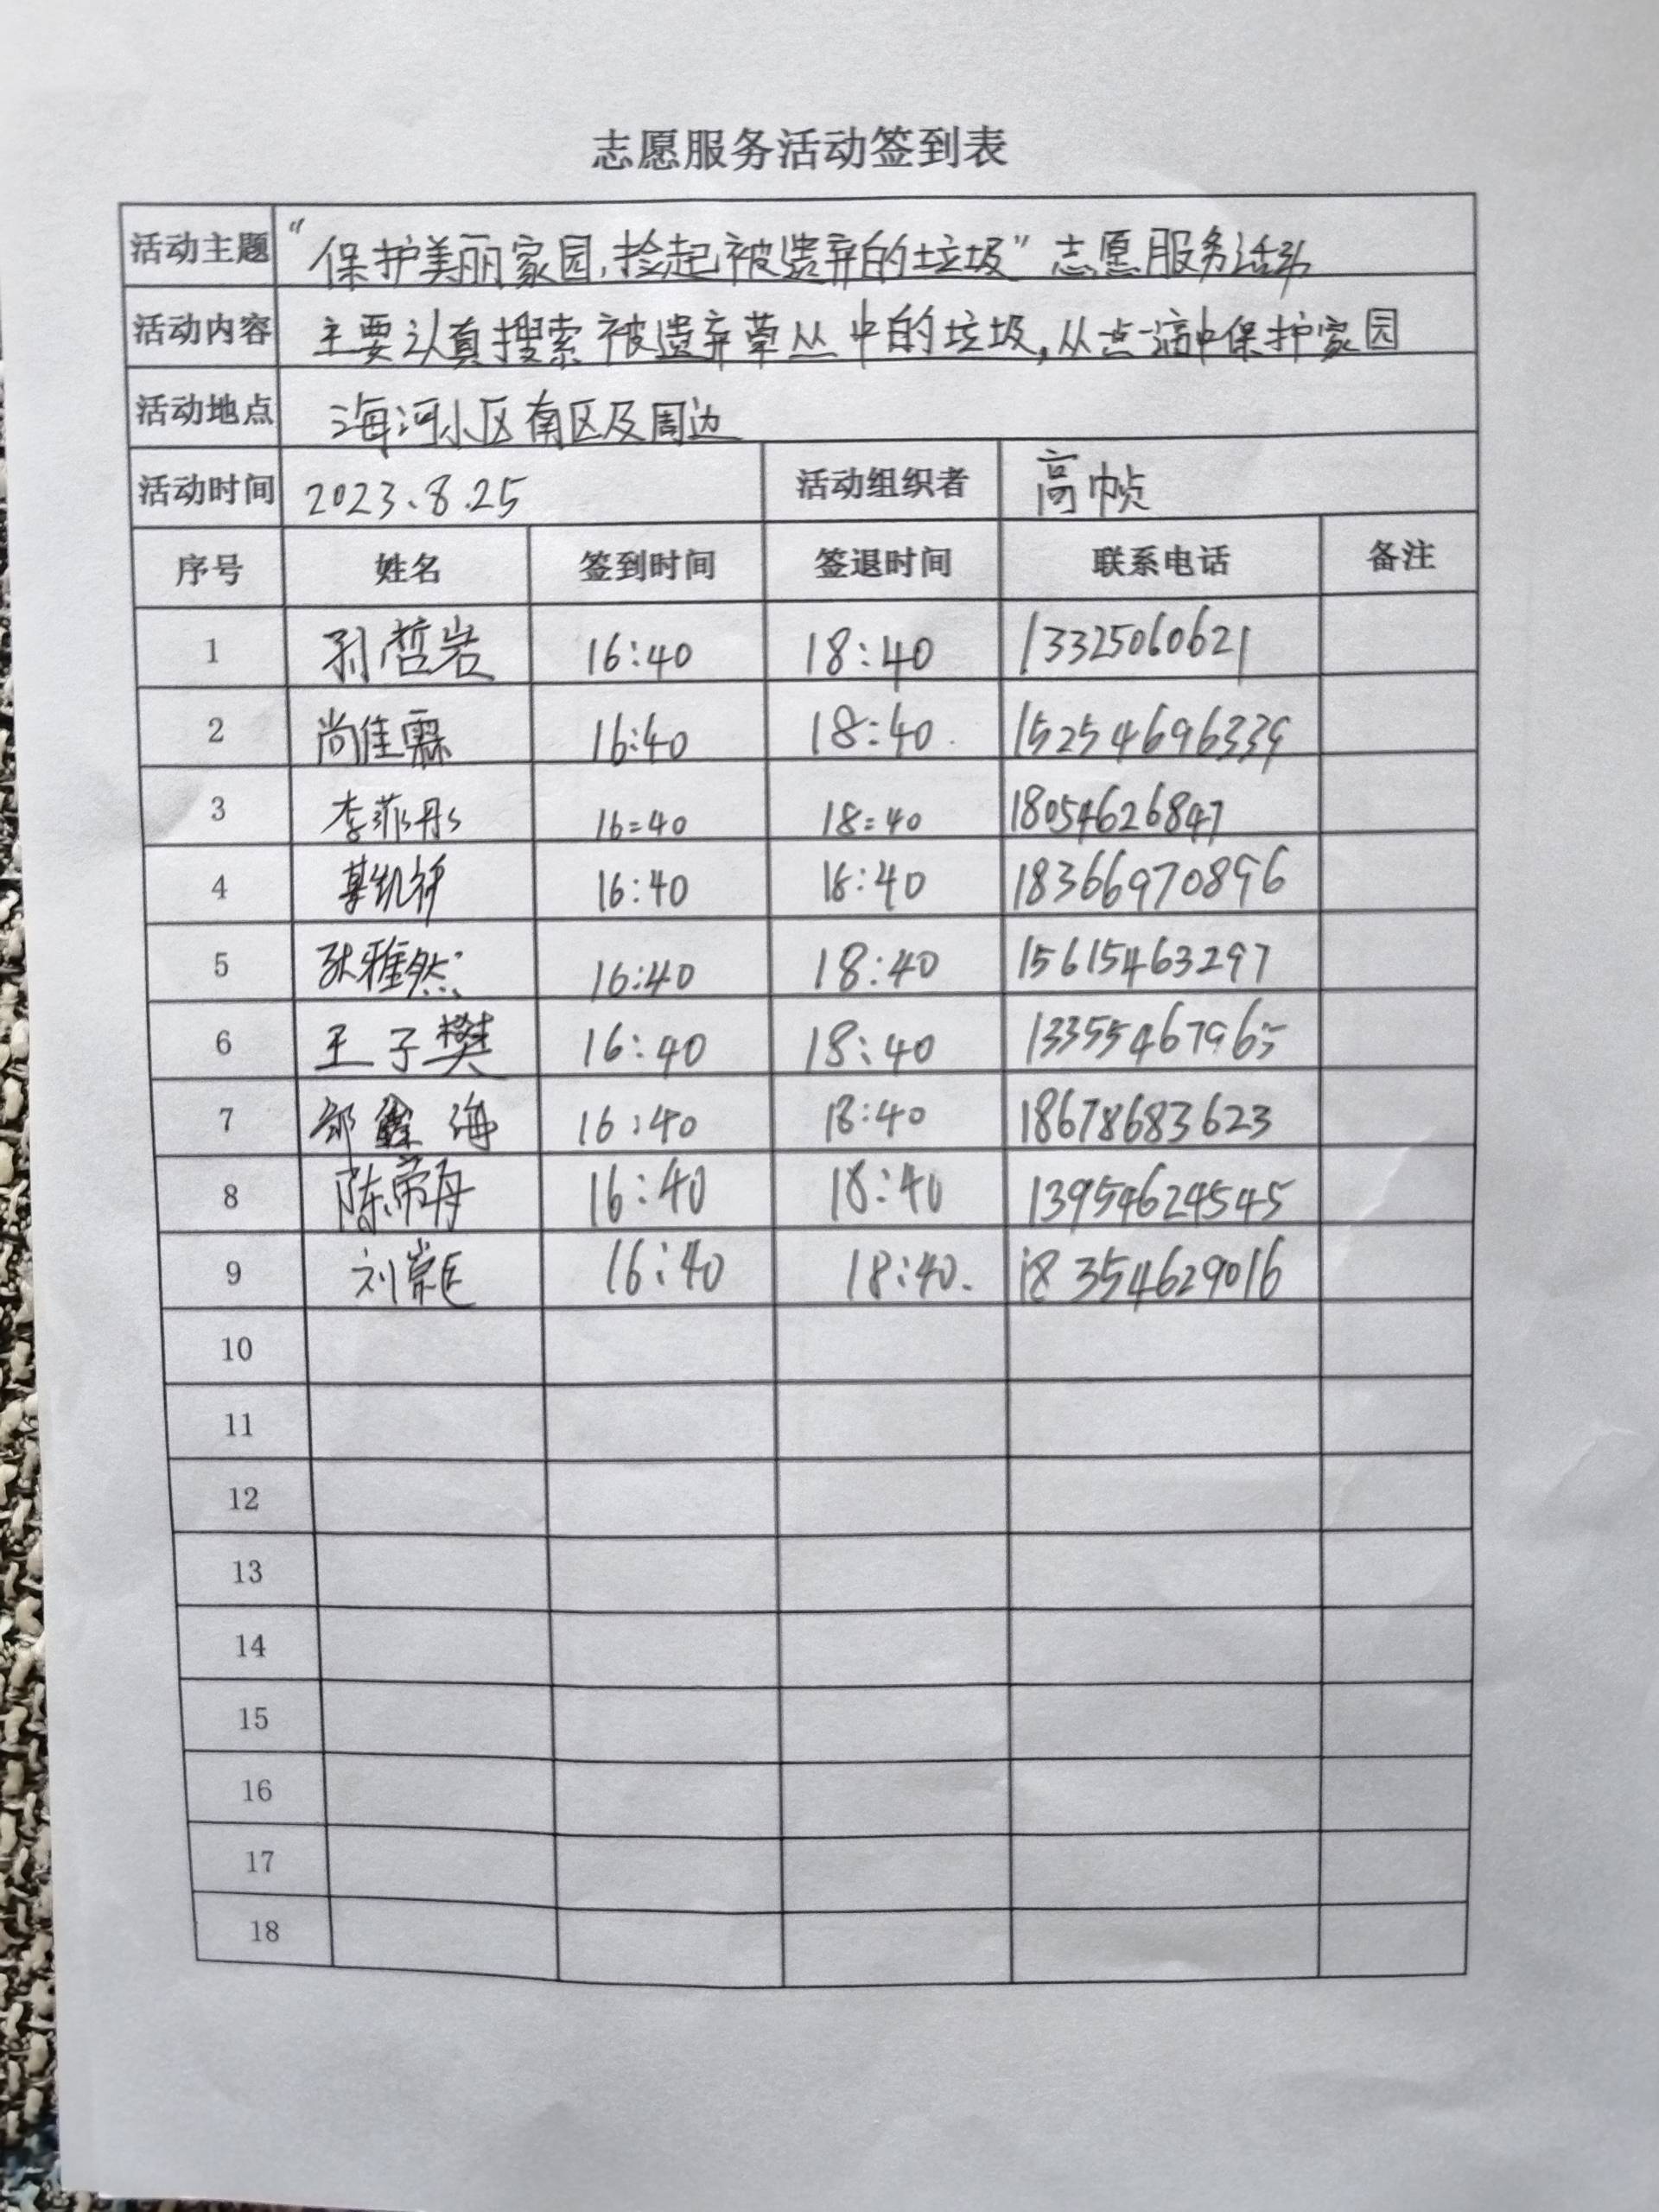 志愿服务活动签到表
活动主题 “保护美丽家园,捡起被遗弃的垃圾”志愿服务活动
活动内容 主要认真搜索被遗弃草丛中的垃圾,从点滴中保护家园
活动地点 海河小区南区及周边
活动时间 2023.8.25 活动组织者 高帧
序号 姓名 签到时间 签退时间 联系电话 备注
1 孙哲岩 16:40 18:40 13325060621
2 尚佳霖 16:40 18:40 15254696339
3 李菲彤 16:40 18:40 18054626847
4 16:40 18:40 18366970896
5 张雅然 16:40 18:40 15615463297
6 王子樊 16:40 18:40 13355467965
7 海 16:40 18:40 18678683623
8 陈荣舟 16:40 18:40 13954624545
9 刘崇 16:40 18:40. 18354629016
10
11
12
13
14
15
16
17
18